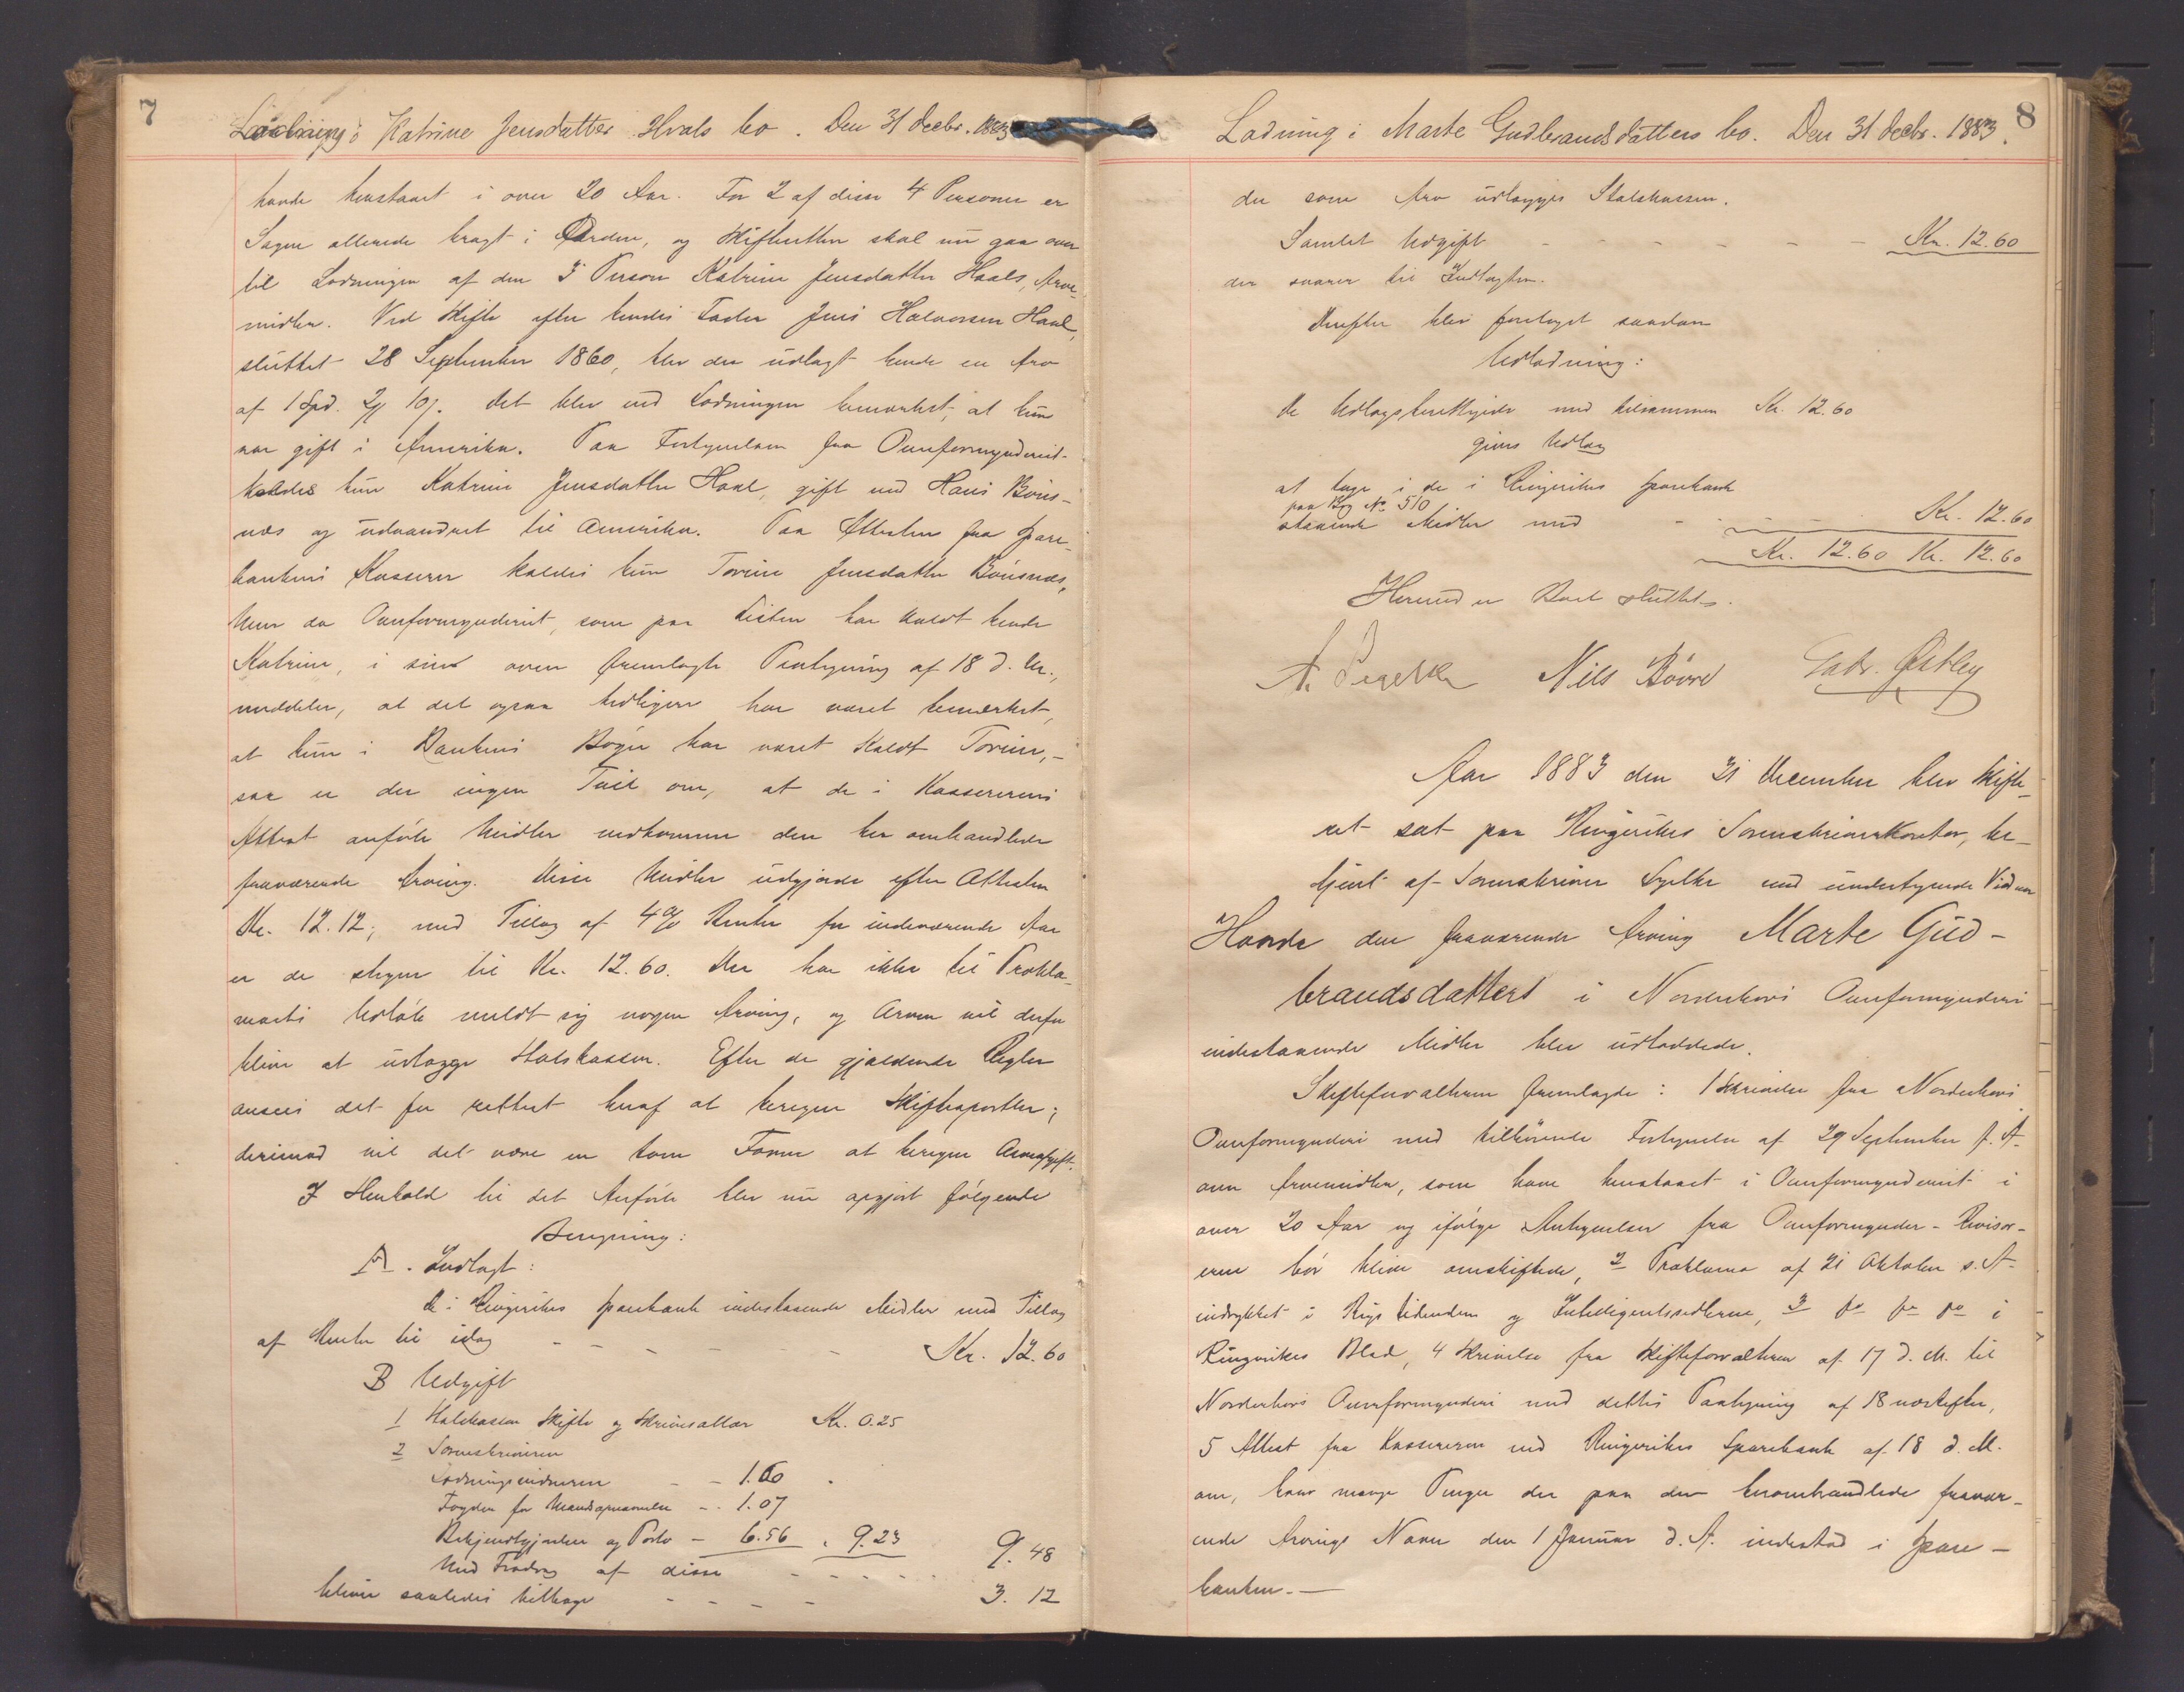 7
Lodning i Katrine Jensdatter Hvals bo. Den 31 Decbr. 1883
havde henstaaet i over 20 Aar. For 2 af disse 4 Personer er
Sagen allerede bragt i Orden, og Skifteretten skal nu gaa over
til Lodningen af den 3 Person Katrine Jensdatter Hvals, Arve-
midler. Ved Skifte efter hendes Fader Jens Halvorsen Hval,
sluttet 28 September 1860, blev der udlagt hende en Arv
af 1 Spd. 2 10. Det blev ved Lodningen bemærket, at hun
var gift i Amerika. Paa Fortegnelsen fra Overformynderiet
kaldes hun Katrine Jensdatter Hval, gift med Hans Bøns-
næs og udvandret til Amerika. Paa Attesten fra Spare-
bankens Kasserer kaldes hun Torine Jensdatter Bønsnæs,
Men da Overformynderiet, som paa Listen har kaldt hende
Katrine, i sin oven fremlagte Paategning af 18 d. M.,
meddeler, at det ogsaa tidligere har været bemærket,
at hun i Bankens Bøger har været kaldt Torine, -
saa er der ingen Tvil om, at de i Kassererens
Attest anførte Midler vedkomme den her omhandlede
fraværende Arving. Disse Midler udgjorde efter Attesten
Kr. 12.12, med Tillæg af 4 % Renter for indeværende Aar
er de stegne til Kr. 12.60. Der har ikke til Prokla-
maets Udløb meldt sig nogen Arving, og Arven vil derfor
blive at udlægge Statskassen. Efter de gjældende Regler
ansees det for rettest heraf at beregne Skifteportler;
derimod vil det være en tom Form at beregne Arveafgift.
I Henhold til det Anførte blev nu opgjort følgende
Beregning:
A. Indtægt:
De i Ringerikes Sparebank indestaaende Midler med Tillæg
af Renter til idag - - - - - - Kr. 12.60
B Udgift
1 Statskassen Skifte og Skriversallær Kr. 0.25
2 Sorenskriveren
Lodningsvidnerne - - 1.60
Fogden for Mandsopnævnelse - - 1.07
Bekjendtgjørelser og Porto - 6.56 . 9.23 9.48
Med Fradrag af disse - - - - -
blive saaledes tilbage - - - - 3.12
8
Lodning i Marte Gudbrandsdatters bo. Den 31 Decbr. 1883.
der som Arv udlægges Statskassen.
Samlet Udgift - - - - - - Kr. 12.60
der svarer til Indtægten.
Derefter blev foretaget saadan
Udlodning:
De Udlagsberettigede med tilsammen Kr. 12.60
gives Udlæg
at tage i de i Ringerikes Sparebank
paa Bog No. 510
staaende Midler med - - - - Kr. 12.60
Kr. 12.60 Kr. 12.60
Hermed er Boet sluttet.
Nils Bøvre Gabr. Østby
Aar 1883 den 31 December blev Skifte-
ret sat paa Ringerikes Sorenskriverkontor, be-
tjent af Sorenskriver med undertegnede Vidner
Hvorda den fraværende Arving Marte Gud-
brandsdatters i Norderhovs Overformynderi
indestaaende Midler blev udloddede.
Skifteforvalteren fremlagde: 1 Skrivelse fra Norderhovs
Overformynderi med tilhørende Fortegnelse af 29 September f. A.
over Arvemidler, som have henstaaet i Overformynderiet i
over 20 Aar og ifølge Antegnelser fra Overformynder-Revisor-
erne bør blive omskiftede, 2 Proklama af 21 Oktober s. A.
indrykket i Rigstidenden og Intelligentssedlerne, 3 do do do i
Ringerikes Blad, 4 Skrivelse fra Skifteforvalteren af 17 d. M. til
Norderhovs Overformynderi med dettes Paategning af 18 næstefter,
5 Attest fra Kassereren ved Ringerikes Sparebank af 18 d. M.
om, hvor mange Penge der paa den heromhandlede fravær-
ende Arvings Navn den 1 Januar d. A. indestod i Spare-
banken. -